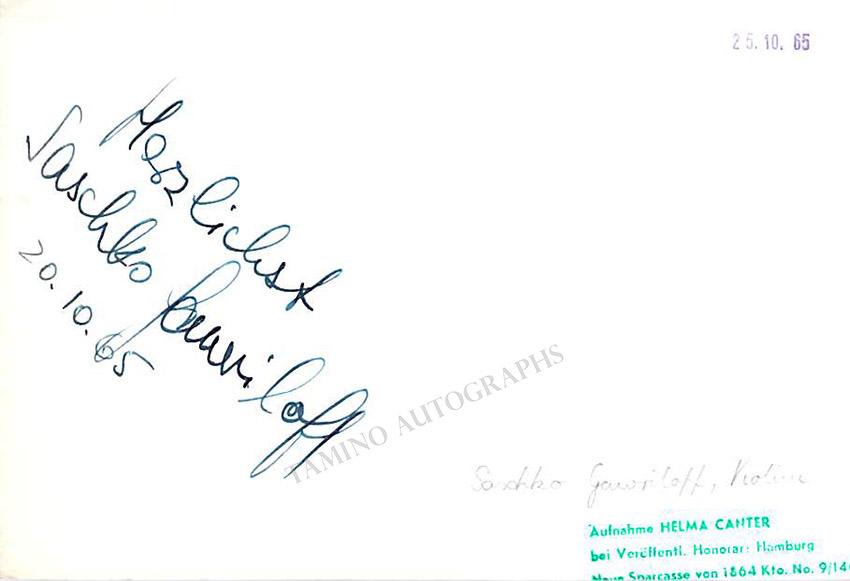 25.10.65
Herzlichst
Saschko Gawriloff
20.10.65
TAMINO AUTOGRAPHS
Saschko Gawriloff, Violine
Aufnahme HELMA CANTER
bei Veröffentl. Honorar: Hamburg
Neue Sparcasse von 1864 Kto. No. 9/14